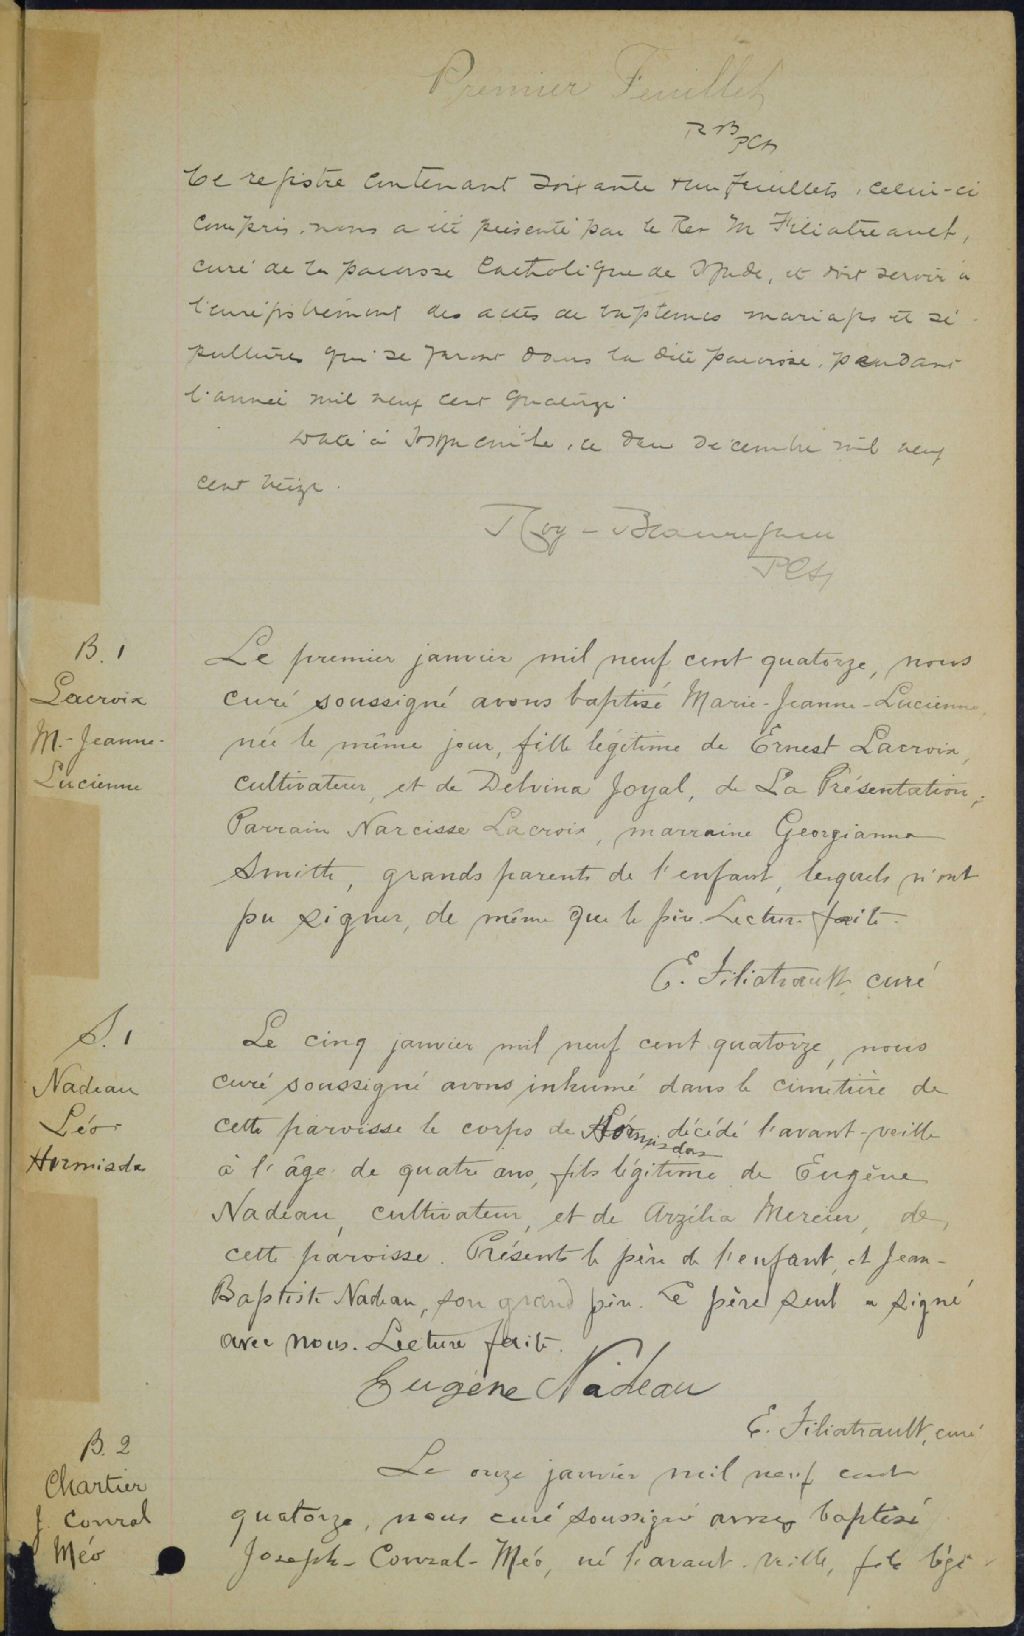 Premier Feuillet
RB
PCS
Ce registre contenant soixante & un feuillets, celui-ci
compris, nous a été présenté par le Rev M Filiatreault,
curé de la paroisse Catholique de St Jude, et doit servir à
l'enregistrement des actes de baptemes mariages et sé-
pultures qui se feront dans la dite paroisse, pendant
l'année mil neuf cent quatorze
Daté à St Hyacinthe, ce deux decembre mil neuf
cent treize.
Roy-Beauregard
PCS
B. 1
Lacroix
M.-Jeanne-
Lucienne
Le premier janvier mil neuf cent quatorze, nous
curé soussigné avons baptisé Marie-Jeanne-Lucienne,
née le même jour, fille légitime de Ernest Lacroix,
cultivateur, et de Delvina Joyal, de La Présentation.
Parrain Narcisse Lacroix, marraine Georgianna
Smith, grands parents de l'enfant, lesquels n'ont
pu signer, de même que le père. Lecture faite.
E. Filiatrault, curé
S. 1
Nadeau
Léo
Hormisdas
Le cinq janvier mil neuf cent quatorze, nous
curé soussigné avons inhumé dans le cimetière de
cette paroisse le corps de Hormisdas décédé l'avant-veille
à l'âge de quatre ans, fils légitime de Eugène
Nadeau, cultivateur, et de Arzélia Mercier, de
cette paroisse. Présents le père de l'enfant, et Jean-
Baptiste Nadeau, son grand père. Le père seul a signé
avec nous. Lecture faite.
Eugène Nadeau
E. Filiatrault, curé
B. 2
Chartier
J. Conral
Méo
Le onze janvier mil neuf cent
quatorze, nous curé soussigné avons baptisé
Joseph-Conral-Méo, né l'avant-veille, fils légi-